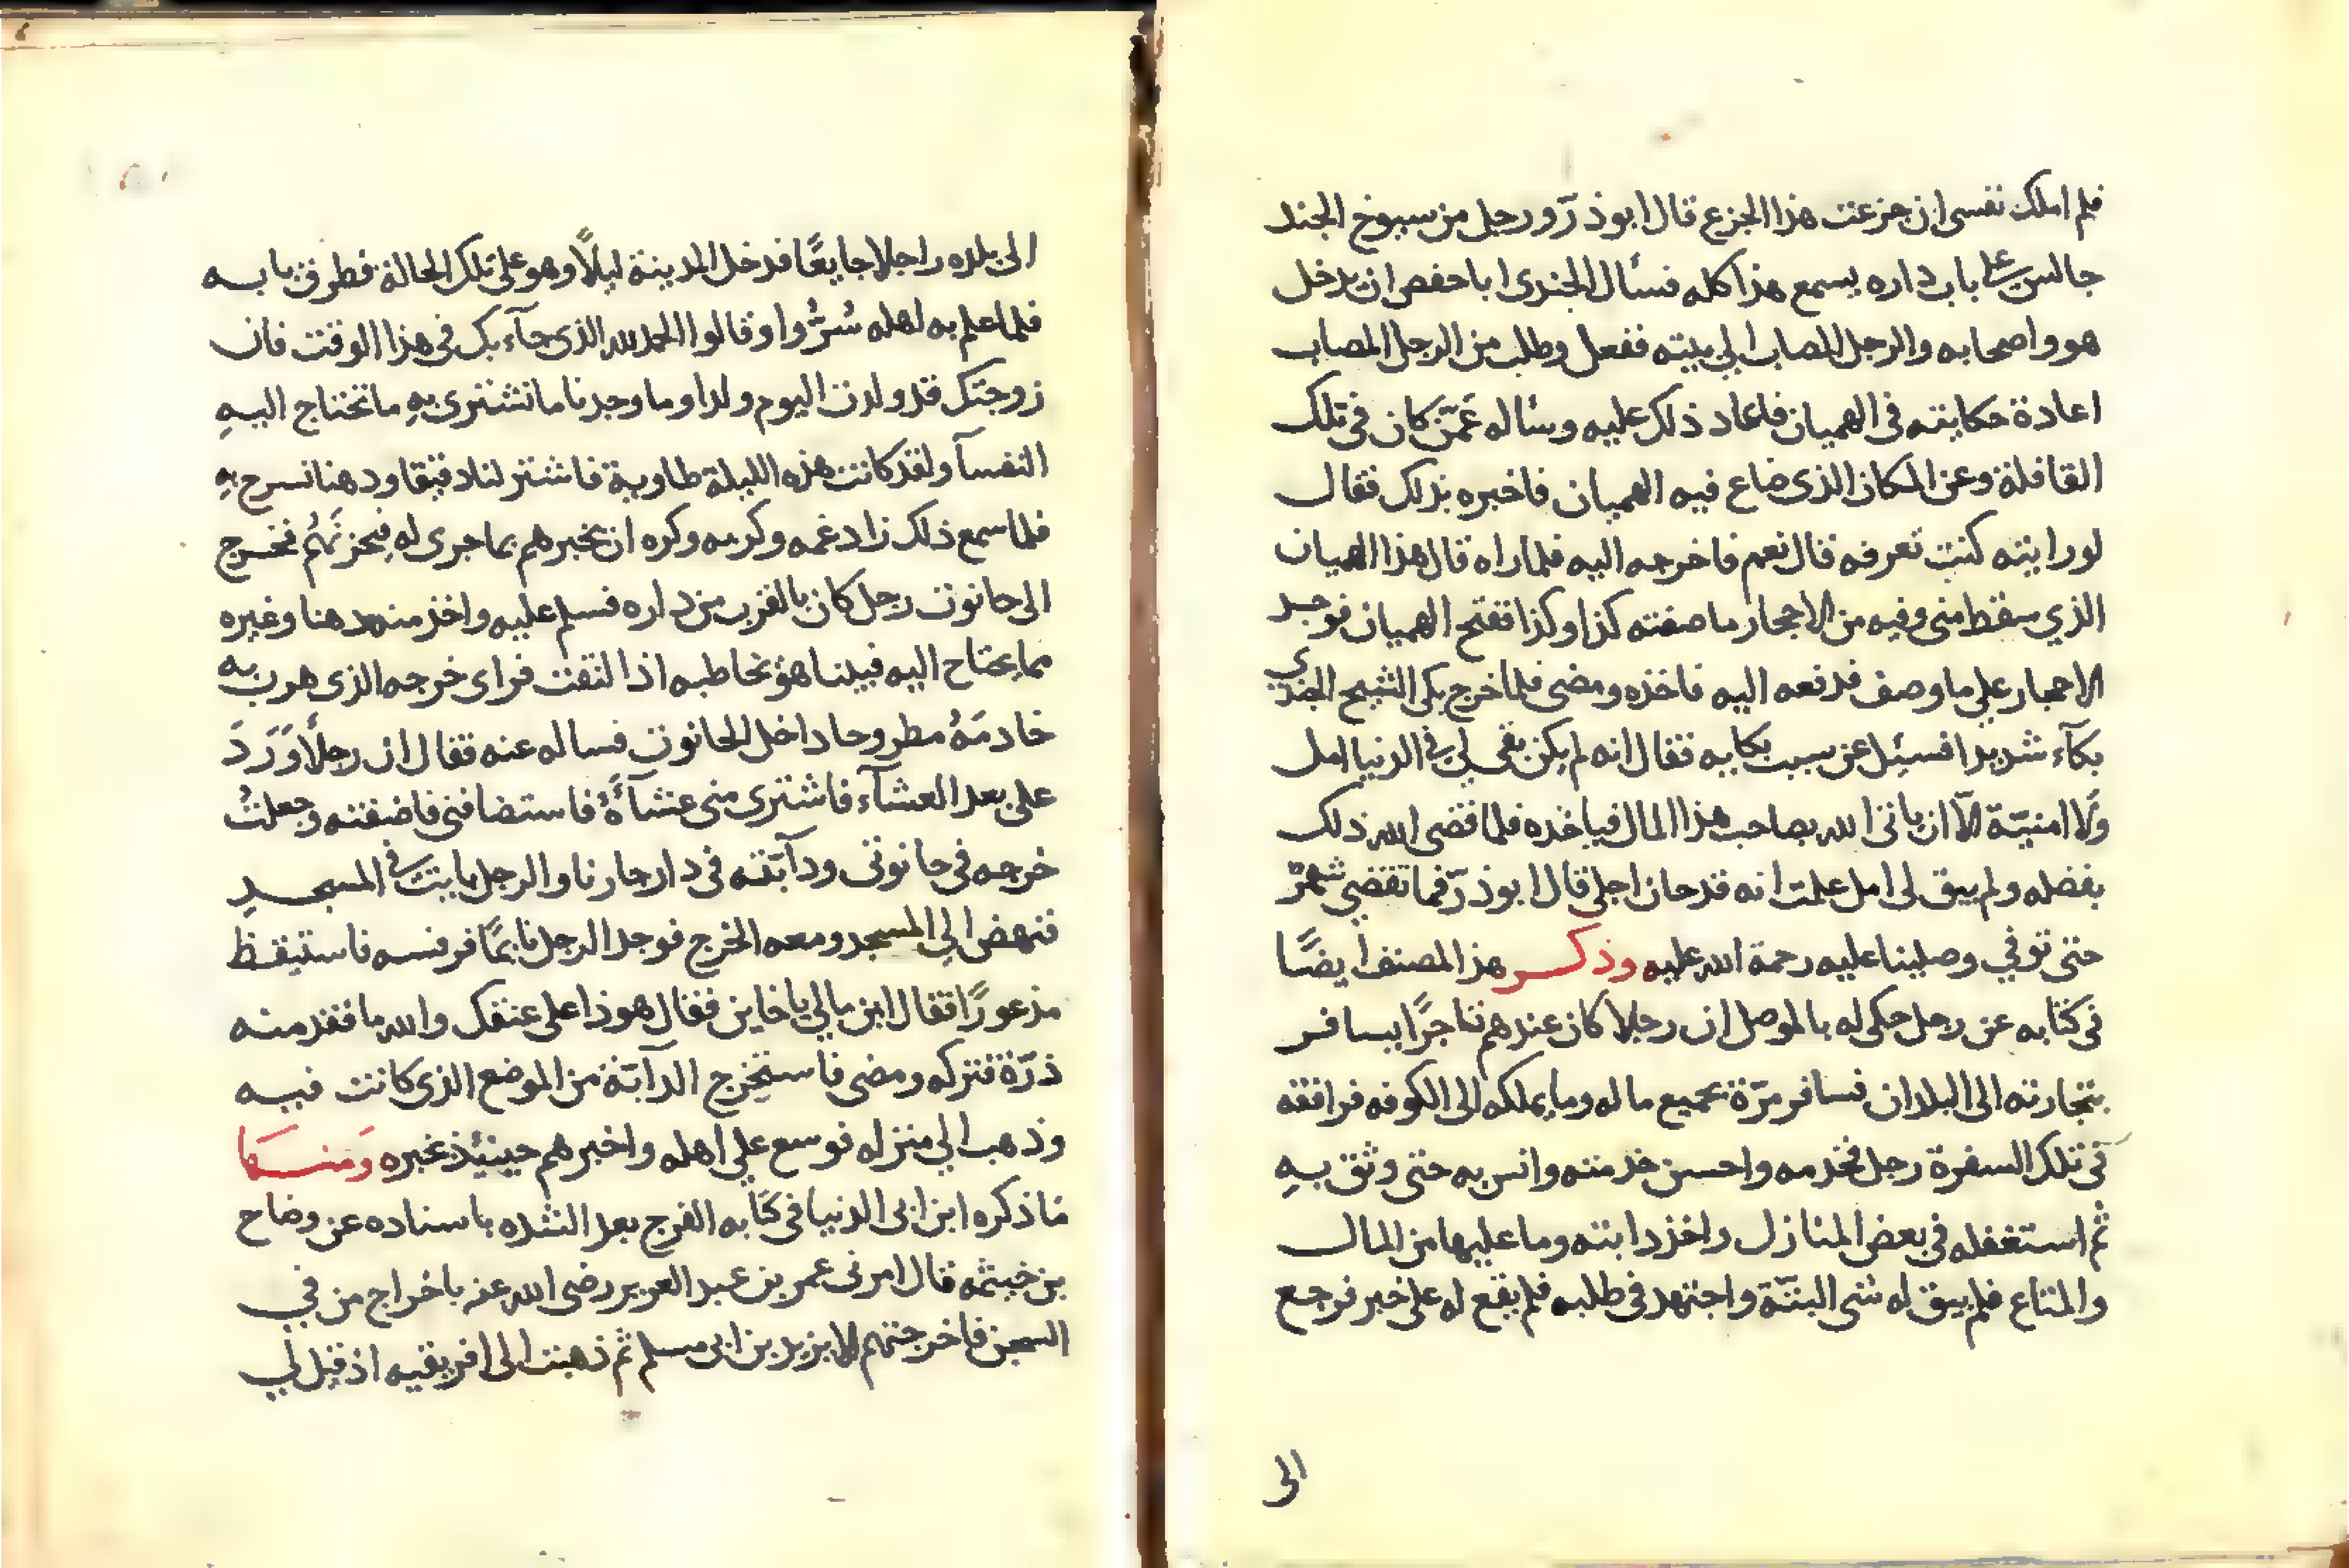 فلم املك نفسى ان جزعت هذا الجزع قال ابوذرّ ورجل من سيوخ الجند
جالس على باب داره يسمع هذا كله فسأل الجندى اباحفص ان يدخل
هو واصحابه والرجل المصاب الى بيته ففعل وطلب من الرجل المصاب
اعادة حكايته فى الهميان فاعاد ذلك عليه وسأله عَمّن كان فى تلك
القافلة وعن المكان الذى ضاع فيه الهميان فاخبره بذلك فقال
لورايته كنت تعرفه قال نعم فاخرجه اليه فلما راه قال هذا الهميان
الذي سقط منى وفيه من الاحجار ما صفته كذا وكذا ففتح الهميان فوجد
الاحجار على ما وصف فدفعه اليه فاخذه ومضى فلما خرج بكى الشيخ الجندى
بكآء شديدا فسئل عن سبب بكايه فقال انه لم يكن بقى لى فى الدنيا امل
ولا امنيّة الّا ان ياتى الله بصاحب هذا المال فياخذه فلما قضى الله ذلك
بفضله ولم يبق لى امل علمت انه قد حان اجلى قال ابوذرّ فما تقضى شهرٌ
حتى توفي وصلينا عليه رحمة الله عليه وذكر هذا المصنف ايضًا
فى كتابه عن رجل حكى له بالموصل ان رجلا كان عندهم تاجرًا يسافر
بتجارته الى البلدان فسافر مرّة بجميع ماله وما يملكه الى الكوفه فرافقه
فى تلك السفرة رجل فخدمه واحسن خدمته وانس به حتى وثق بهِ
ثم استغفله فى بعض المنازل واخذ دابته وما عليها من المال
والمتاع فلم يبق له شى البتّة واجتهد فى طلبه فلم يقع له على خبر فرجع
الى
الى بلده راجلا جايعًا فدخل المدينة ليلًا وهو على تلك الحالة فطرق بابه
فلما علم به اهله سُرُّوا وقالوا الحمد لله الذى جآء بك فى هذا الوقت فان
زوجتك قد ولدت اليوم ولدا وما وجدنا ما نشترى بهِ ما تحتاج اليهِ
النفسآ ولقد كانت هذه الليلة طاوية فاشتر لنا دقيقا ودهنا نسرج بهِ
فلما سمع ذلك زاد غمه وكربه وكره ان يخبرهم بما جرى له فيحزنَهُم فخرج
الى حانوت رجل كان بالقرب من داره فسلم عليه واخذ منه دهنا وغيره
مما يحتاج اليه فبينا هو يخاطبه اذ التفت فراى خرجه الذى هرب به
خادمَهُ مطروحا داخل الحانوت فساله عنه فقال ان رجلًا وَرَدَ
على بعد العشآء فاشترى منى عشآءً فاستضافنى فاضفته وجعلتُ
خرجه فى حانوتى ودآبّته فى دار جارنا والرجل بايت فى المسجدِ
فنهض الى المسجد ومعه الخرج فوجد الرجل نايمًا فرفسه فاستيقظ
مذعورًا فقال اين مالى يا خاين فقال هوذا على عنقك والله ما فقد منه
ذرّة فتركه ومضى فاستخرج الدآبّة من الموضع الذى كانت فيه
وذهب الى منزله فوسع على اهله واخبرهم حينيئذ بخبره وَمنها
ما ذكره ابن ابى الدنيا فى كتابه الفرج بعد الشده باسناده عن وضاح
بن خيثمه قال امرنى عمر بن عبد العزيز رضى الله عنه باخراج من في
السجن فاخرجتهم الا يزيد بن ابى مسلم ثم ذهبت الى افريقيه اذ قيل لي